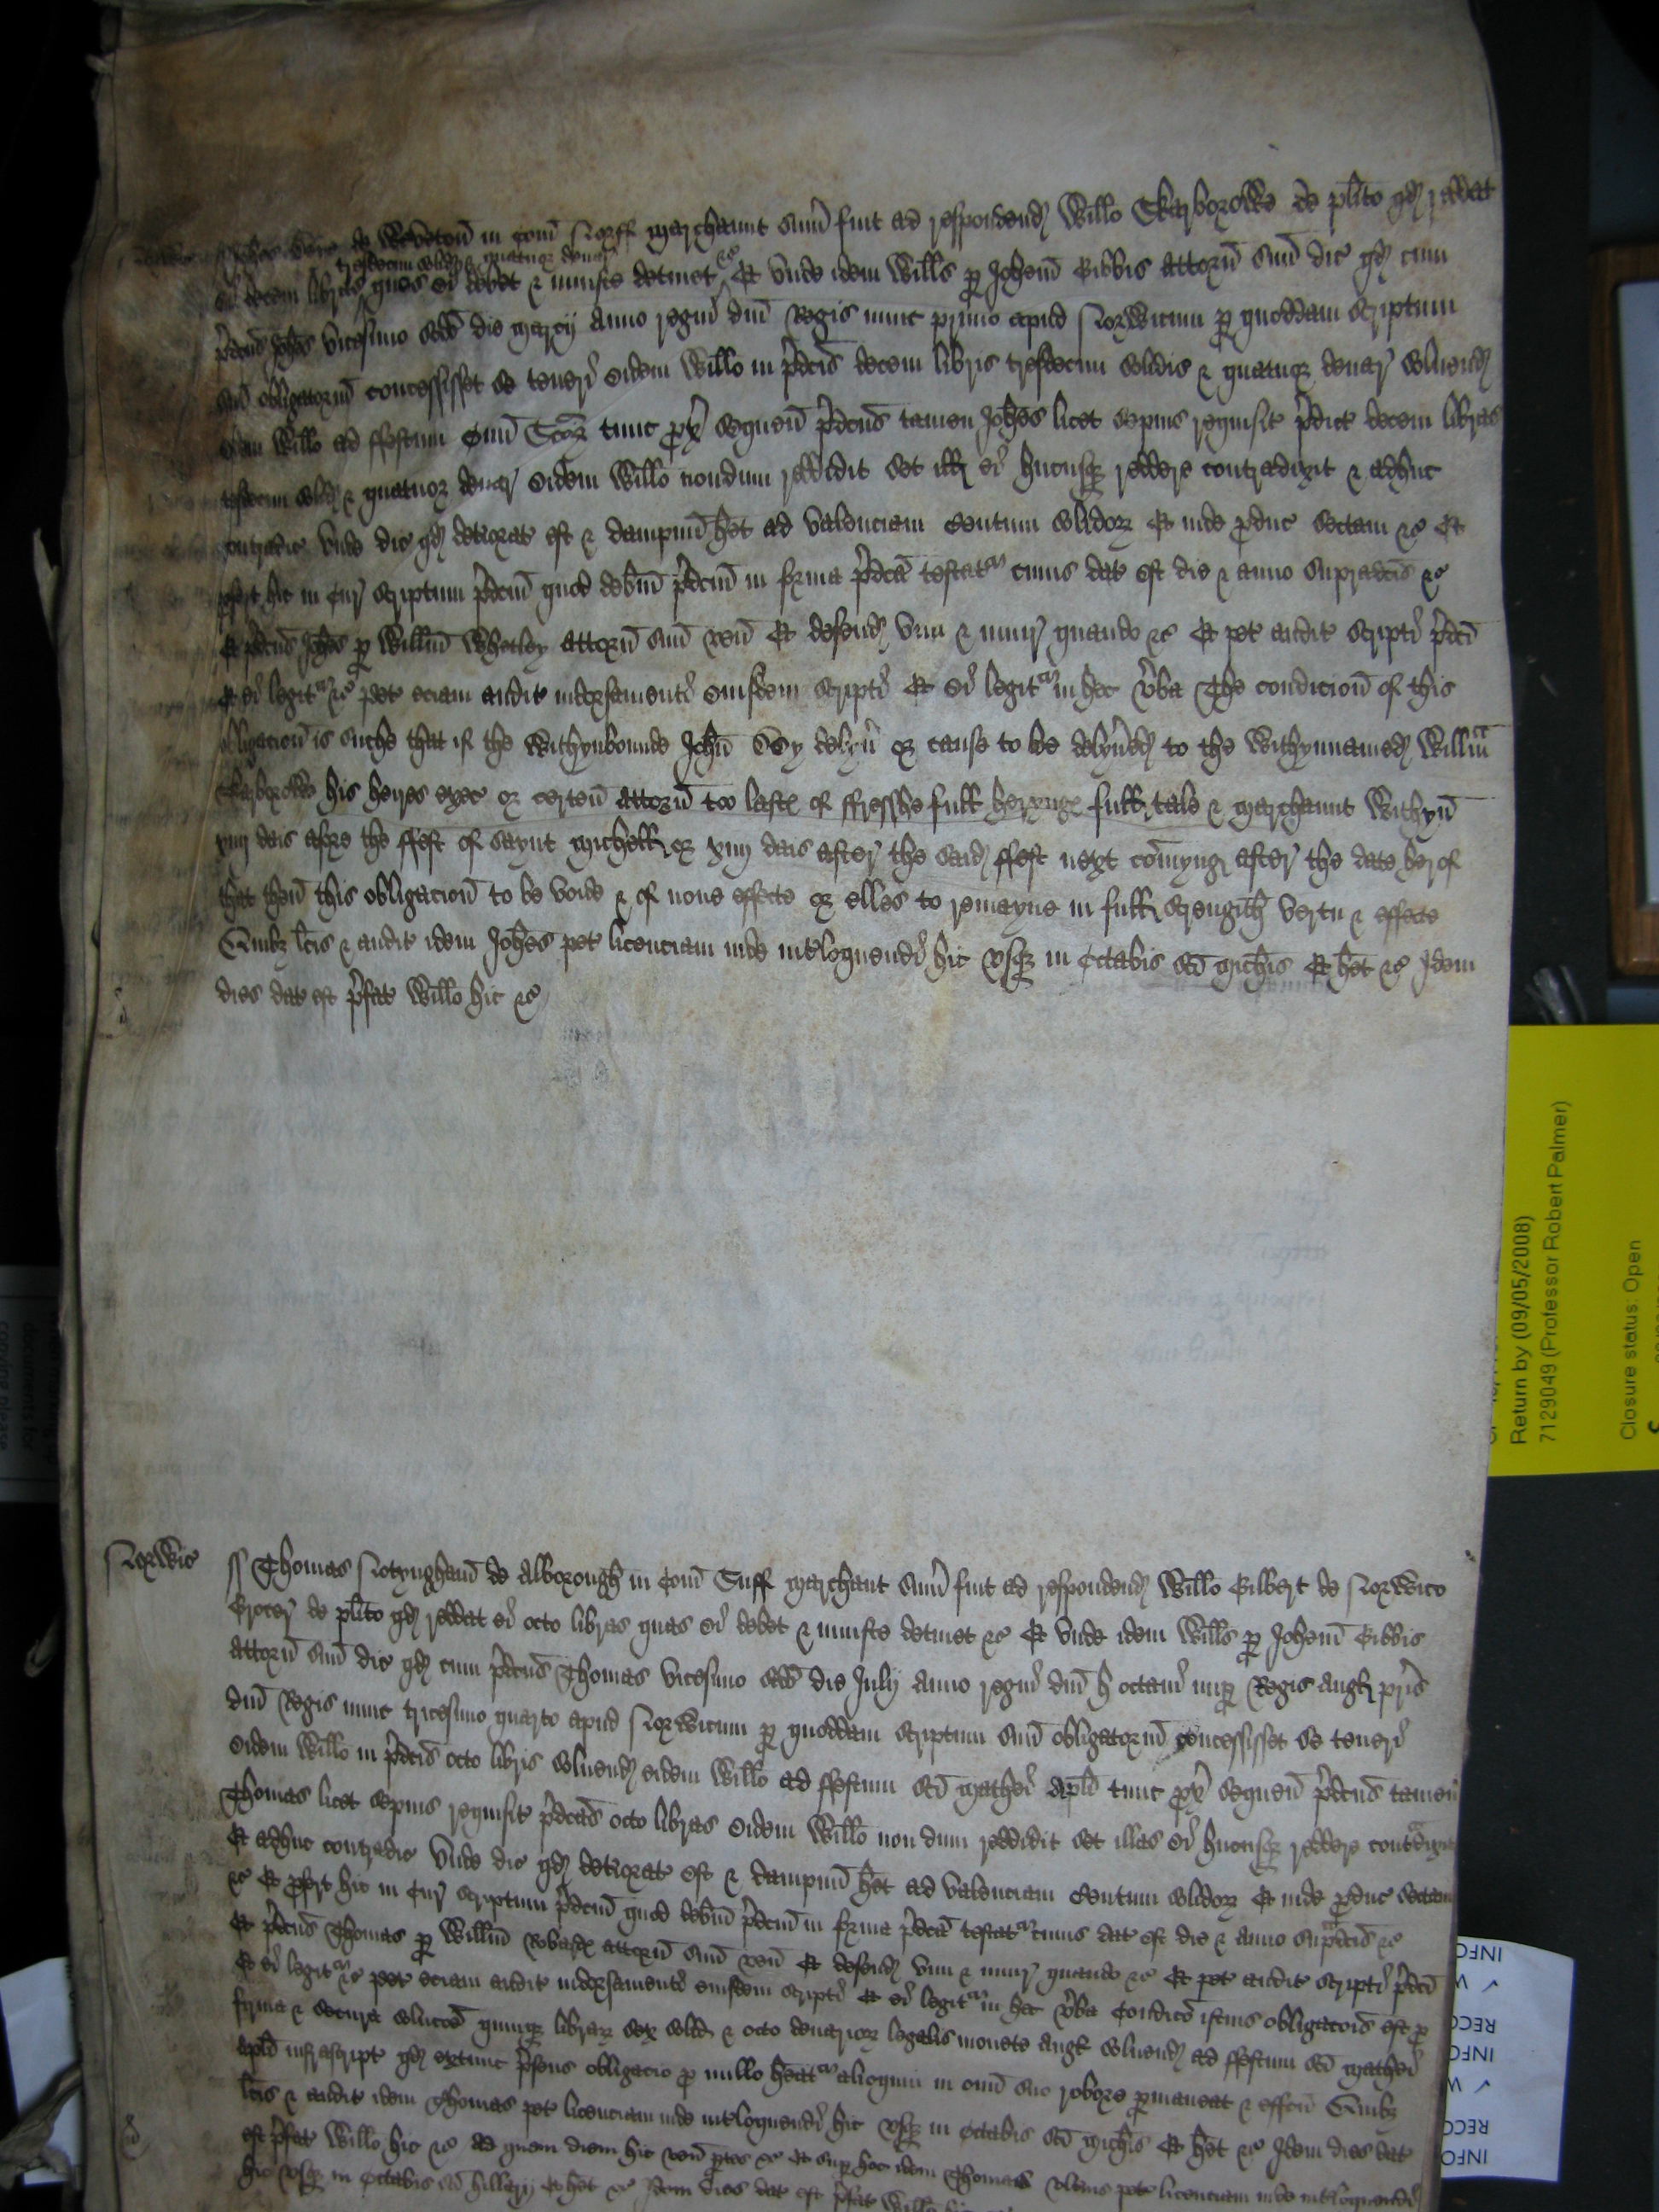 de Weveton in Com Norff marchaunt sum fuit ad respondend Willo Skarborowe de plito qd reddat
tresdecim solid & quatuor denar
ei decem libras quas ei debet & iniuste detinet &c Et unde idem Wills p Johem Gibbis attorn suu dic qd cum
pdcus Johes vicesimo scdo die marcij Anno regni dni Regis nunc primo apud Norwicum p quoddam scriptum
suu obligatoriu concessisset se teneri eidem Willo in pdcis decem libris tresdecim solidis & quatuor denar solvend
eidem Willo ad ffestum Omi Scor tunc px sequen pdcus tamen Johes licet sepius requisit pdict decem libras
tresdecim solid & quatuor denar eidem Willo nondum reddidit set ill ei hucusq reddere contradixit & adhuc
contradic unde dic qd deteriorat est & dampnu het ad valenciam Centum solidor Et inde pduc sectam &c Et
pfert hic in Cur scriptum pdcm quod debitu pdcm in forma pdca testat cuius dat est die & anno supradcis &c
Et pdcus Johes p Willm Whetley attorn suu ven Et defend vim & iniur quando &c Et pet auditu scripti pdci
Et ei legit &c pet eciam auditu indorsamenti eiusdem scripti Et ei legit in hec vba The condicion of this
obligacion is suche that if the withynbounde John delyv or cause to be delyved to the withynnamed Willm
Skarborowe his heyres exec or certen attorn too laste of ffresshe full heryng full tale & marchaunt withyn
xiiij dais afore the ffest of saynt Michell or xiiij dais after the said ffest next comyng after the date herof
that then this obligacion to be voide & of none effecte or elles to remayne in full strength vertu & effecte
Quibz lcis & audit idem Johes pet licenciam inde intloquendi hic usq in Octabis sci Michis Et het &c Idem
dies dat est pfat Willo hic &c
Norwic
ss Thomas Notyngham de Alborough in Com Suff marchant sum fuit ad respondend Willo Gilbert de Norwico
Grocer de plito qd reddat ei octo libras quas ei debet & iniuste detinet &c Et unde idem Wills p Johem Gibbis
attorn suu dic qd cum pdcus Thomas vicesimo scdo die Julij Anno regni dni H octavi nup Regis Angl pris
dni Regis nunc tricesimo quarto apud Norwicum p quoddam scriptum suu obligatoriu concessisset se teneri
eidem Willo in pdcis octo libris solvend eidem Willo ad ffestum sci Mathei Apli tunc px sequen pdcus tamen
Thomas licet sepius requisit pdcas octo libras eidem Willo non dum reddidit set illas ei hucusq reddere contdixit
Et adhuc contradic unde dic qd deteriorat est & dampnu het ad valenciam Centum solidor Et inde pduc sectam
&c Et pfert hic in Cur scriptum pdcm quod debitu pdcm in forma pdca testat cuius dat est die & Anno supdcis &c
Et pdcus Thomas p Willm Robards attorn suu ven Et defend vim & iniur quando &c Et pet auditu scripti pdci
Et ei legit &c pet eciam auditu indorsamenti eiusdem scripti Et ei legit in hec vba Condico istius obligacois est p
firma & secura solucoe quinq librar sex solid & octo denarior legalis monete Angl solvend ad ffestum sci Mathei
Apli infrascript qd extunc psens obligacio p nullo heat alioquin in omi suo robore pmaneat & effcu Quibz
lcis & audit idem Thomas pet licenciam inde intloquendi hic usq in Octabis sci Michis Et het &c Idem dies dat
est pfat Willo hic &c Ad quem diem hic ven ptes &c Et sup hoc idem Thomas ulterius pet licenciam inde intloquendi
hic usq in Octabis sci Hillarij Et het &c Idem dies dat est pfat Willo hic &c
Return by (09/05/2008)
7129049 (Professor Robert Palmer)
Closure status: Open